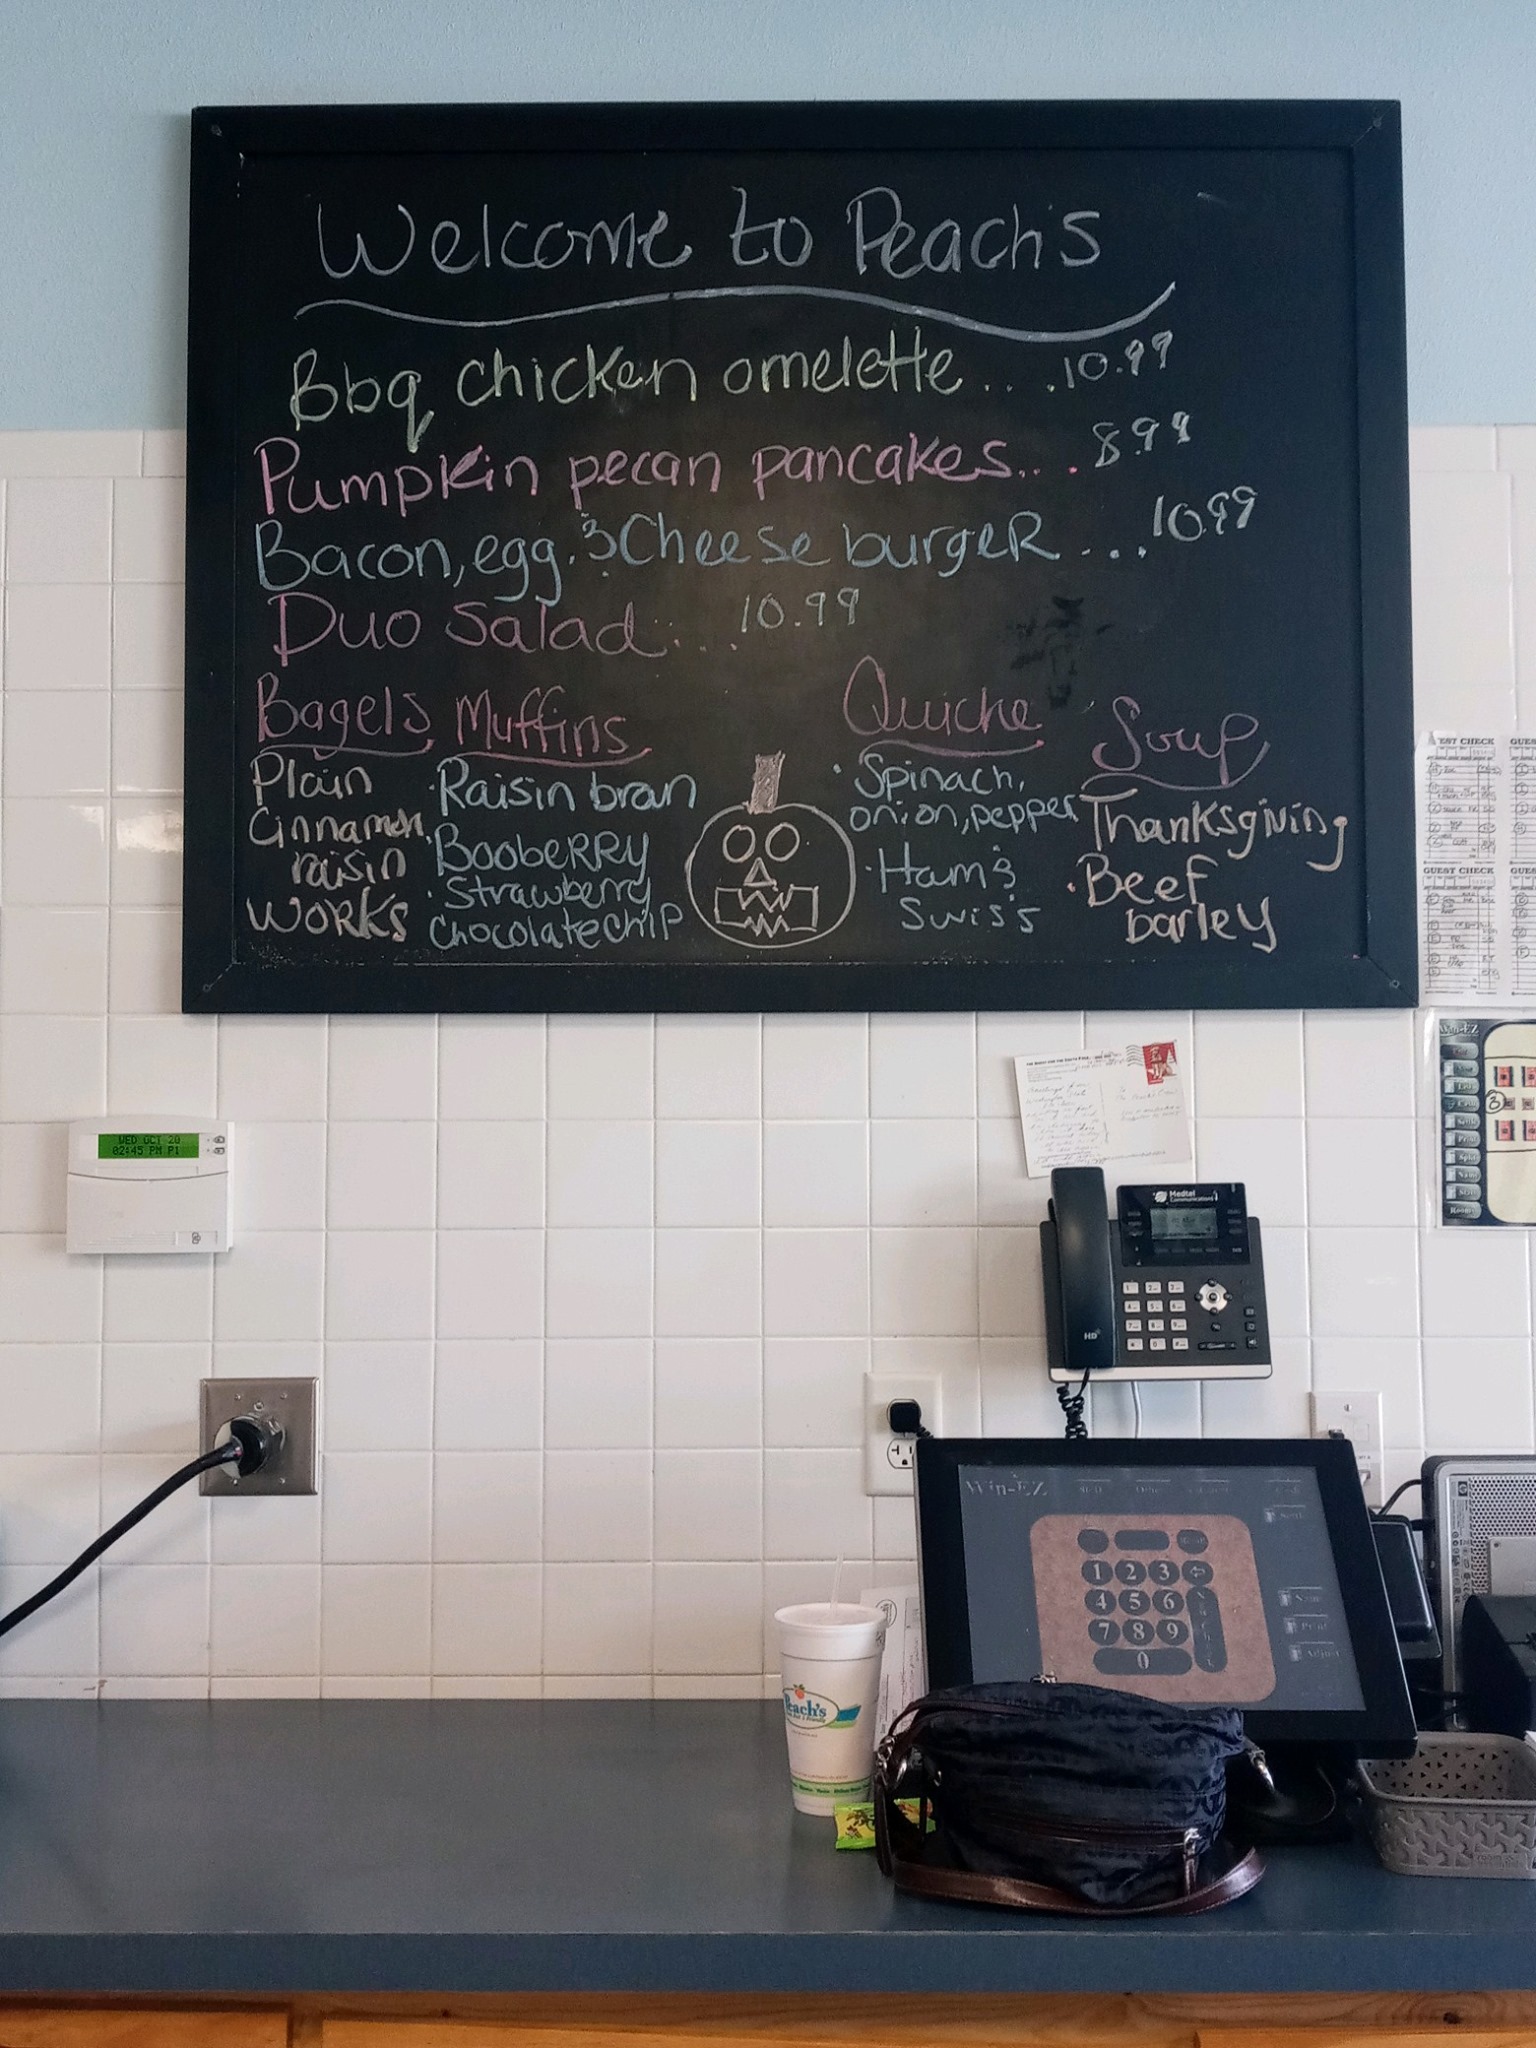 Welcome to Peach's
Bbq chicken omelette.... 10.99
Pumpkin pecan pancakes... 8.99
Bacon, egg, & Cheese burger.... 10.99
Duo Salad.... 10.99
Bagels
Plain
Cinnamon
raisin
Works
Muffins
· Raisin bran
· Booberry
· Strawberry
chocolate chip
Quiche
· Spinach,
onion, pepper
· Ham &
Swiss
Soup
Thanksgiving
· Beef
barley
GUEST CHECK
GUEST CHECK
Win-EZ
WED OCT 20
02:45 PM P1
Medtel
Communications
HD
Win-EZ
1 2 3
4 5 6
7 8 9
0
Print
Adjust
Peach's